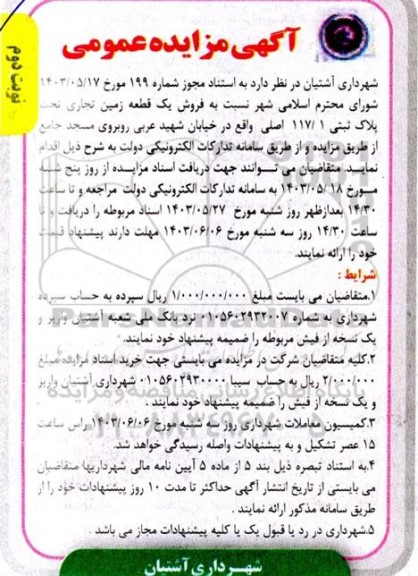 آگهی مزایده عمومی
نوبت دوم
شهرداری آشتیان در نظر دارد به استناد مجوز شماره ۱۹۹ مورخ ۱۴۰۳/۰۵/۱۷
شورای محترم اسلامی شهر نسبت به فروش یک قطعه زمین تجاری تحت
پلاک ثبتی ۱ /۱۱۷ اصلی واقع در خیابان شهید عربی روبروی مسجد جامع
از طریق مزایده و از طریق سامانه تدارکات الکترونیکی دولت به شرح ذیل اقدام
نماید. متقاضیان می توانند جهت دریافت اسناد مزایده از روز پنج شنبه
مورخ ۱۴۰۳/۰۵/۱۸ به سامانه تدارکات الکترونیکی دولت مراجعه و تا ساعت
۱۴/۳۰ بعدازظهر روز شنبه مورخ ۱۴۰۳/۰۵/۲۷ اسناد مربوطه را دریافت و تا
ساعت ۱۴/۳۰ روز سه شنبه مورخ ۱۴۰۳/۰۶/۰۶ مهلت دارند پیشنهاد قیمت
خود را ارائه نمایند.
شرایط :
۱.متقاضیان می بایست مبلغ ۱/۰۰۰/۰۰۰/۰۰۰ ریال سپرده به حساب سپرده
شهرداری به شماره ۰۱۰۵۶۰۲۹۳۲۰۰۷ نزد بانک ملی شعبه آشتیان واریز و
یک نسخه از فیش مربوطه را ضمیمه پیشنهاد خود نمایند.
۲.کلیه متقاضیان شرکت در مزایده می بایستی جهت خرید اسناد مزایده مبلغ
۲/۰۰۰/۰۰۰ ریال به حساب سیبا ۰۱۰۵۶۰۲۹۳۰۰۰۰ شهرداری آشتیان واریز
و یک نسخه از فیش را ضمیمه پیشنهاد خود نمایند .
۳.کمیسیون معاملات شهرداری روز سه شنبه مورخ ۱۴۰۳/۰۶/۰۶ راس ساعت
۱۵ عصر تشکیل و به پیشنهادات واصله رسیدگی خواهد شد.
۴.به استناد تبصره ذیل بند ۵ از ماده ۵ آیین نامه مالی شهرداریها متقاضیان
می بایستی از تاریخ انتشار آگهی حداکثر تا مدت ۱۰ روز پیشنهادات خود را از
طریق سامانه مذکور ارائه نمایند .
۵.شهرداری در رد یا قبول یک یا کلیه پیشنهادات مجاز می باشد .
شهرداری آشتیان